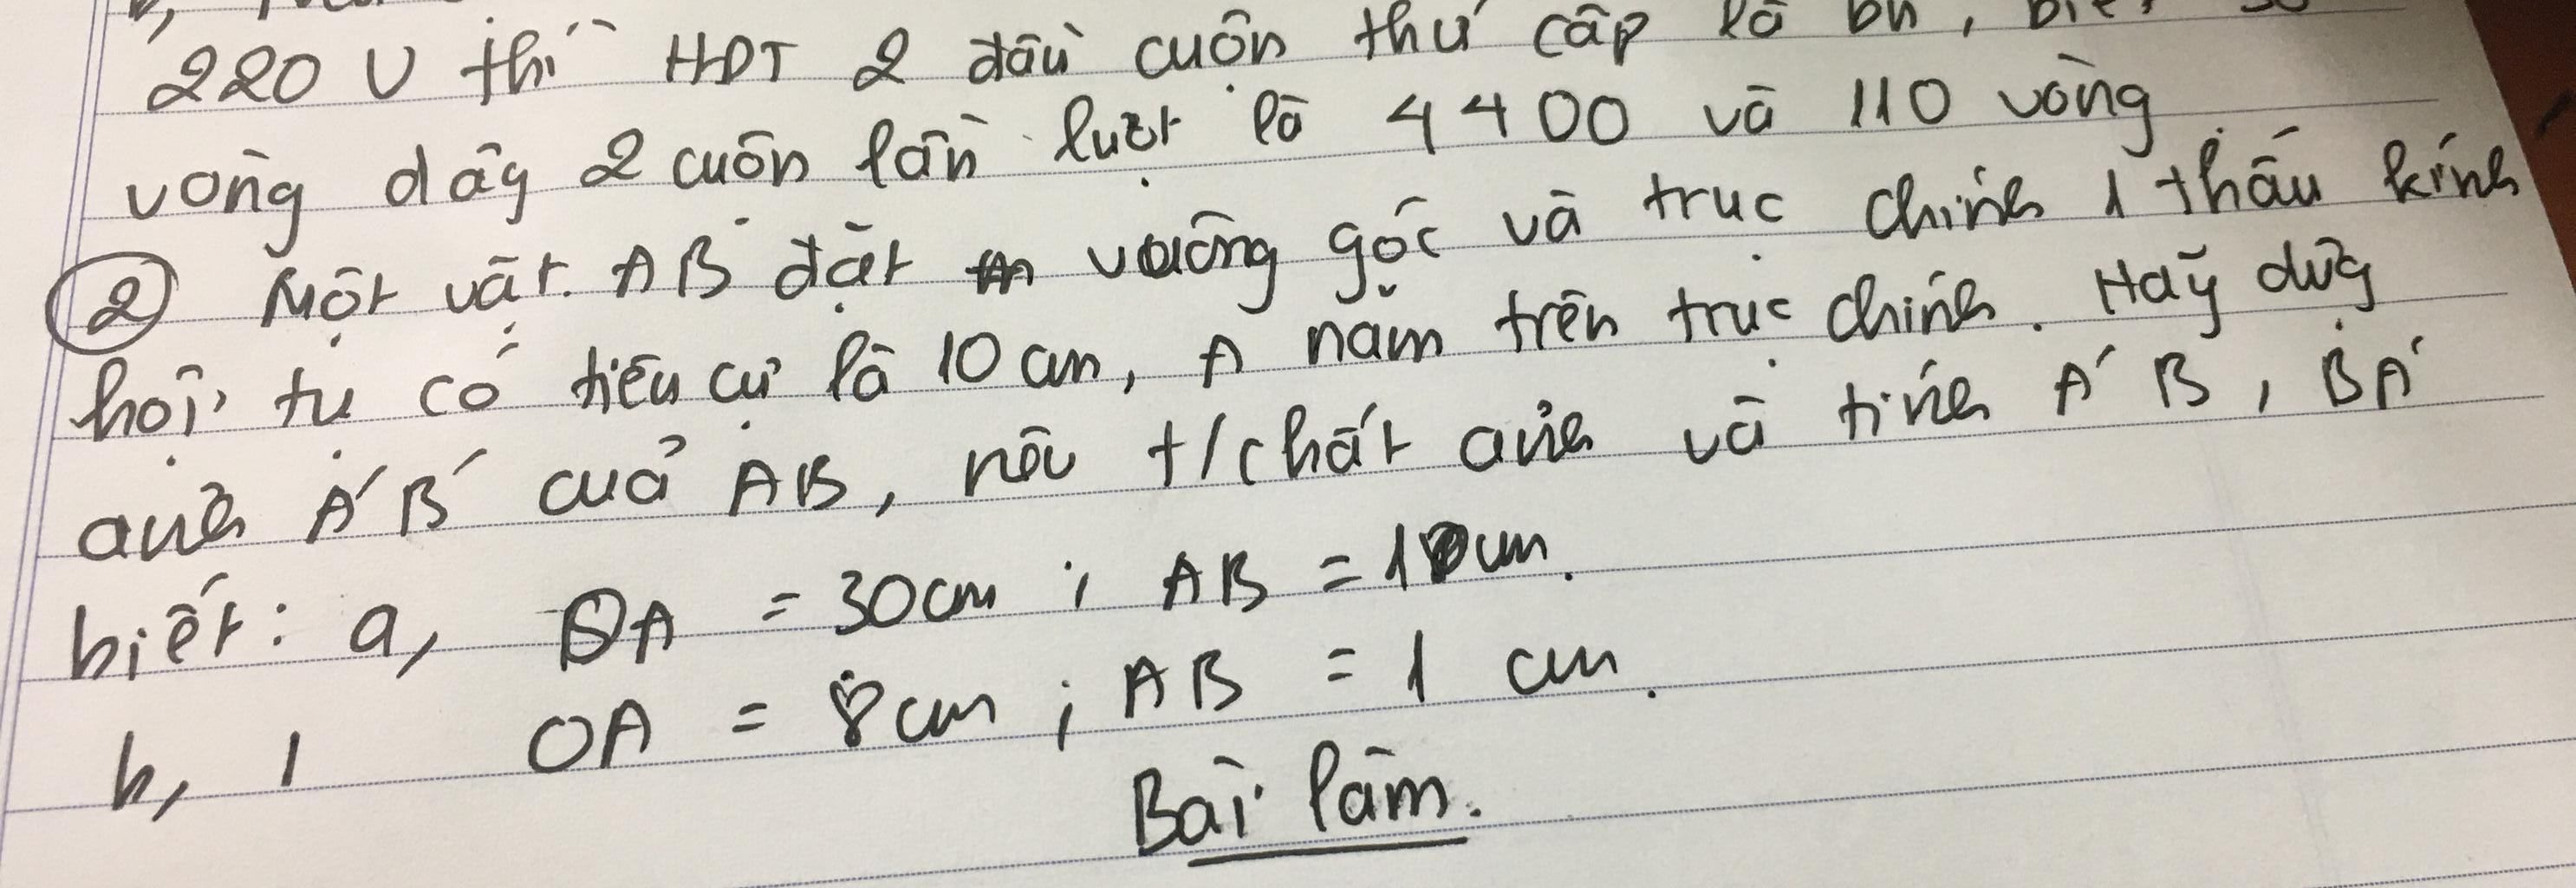 220 V thì HDT 2 đầu cuộn thứ cấp là bn, biết
vòng dây 2 cuộn lần lượt là 4400 và 110 vòng
② Một vật AB đặt vuông gốc và trục chính 1 thấu kính
hội tụ có tiêu cự là 10 cm, A nằm trên trục chính. Hãy dựg
ảnh A'B' cuả AB, nêu t/chất ảnh và tính A'B, BA'
biết: a, OA = 30cm ; AB = 10cm.
b, 1 OA = 8cm ; AB = 1 cm.
Bài làm.